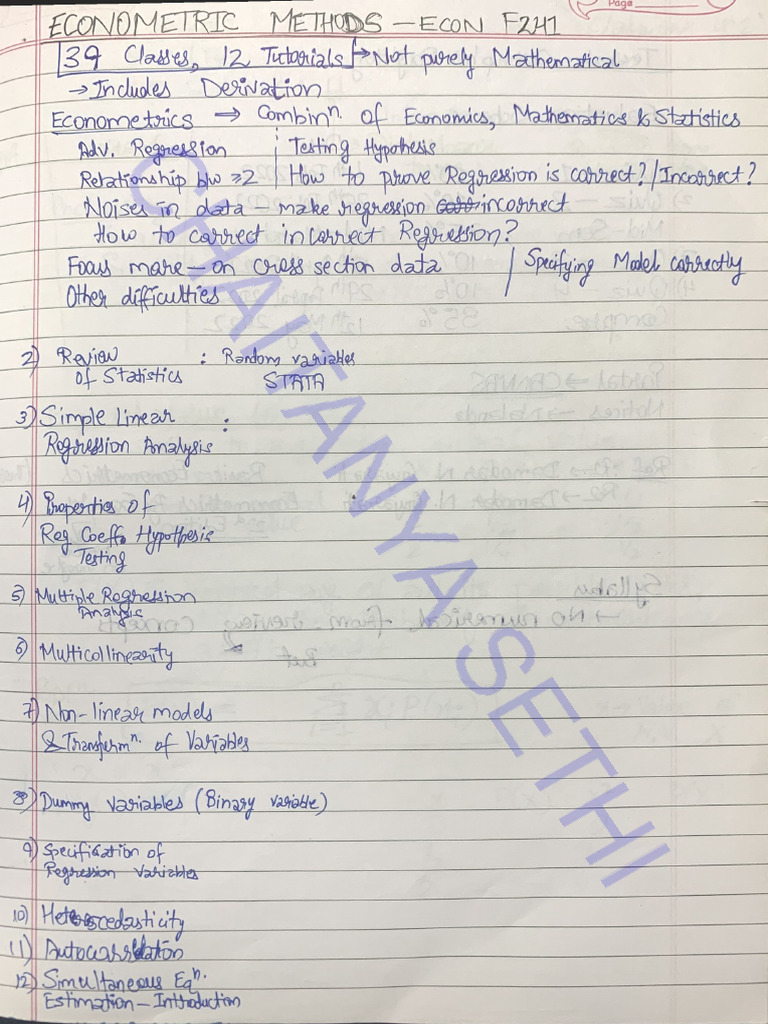 Page
ECONOMETRIC METHODS – ECON F241
39 Classes, 12 Tutorials → Not purely Mathematical
→ Includes Derivation
Econometrics → Combinⁿ. of Economics, Mathematics & Statistics
Adv. Regression | Testing Hypothesis
Relationship b/w ≥2 | How to prove Regression is correct? / Incorrect?
Noises in data – make regression incorrect
How to correct incorrect Regression?
Focus more – on cross section data / Specifying Model correctly
Other difficulties
2) Review : Random variables
of Statistics STATA
3) Simple Linear :
Regression Analysis
4) Properties of
Reg Coeff. Hypothesis
Testing
5) Multiple Regression
Analysis
6) Multicollinearity
7) Non-linear models
& Transformⁿ. of Variables
8) Dummy variables (Binary variable)
9) Specification of
Regression Variables
10) Heteroscedasticity
11) Autocorrelation
12) Simultaneous Eqⁿ.
Estimation – Introduction
CHAITANYA SETHI